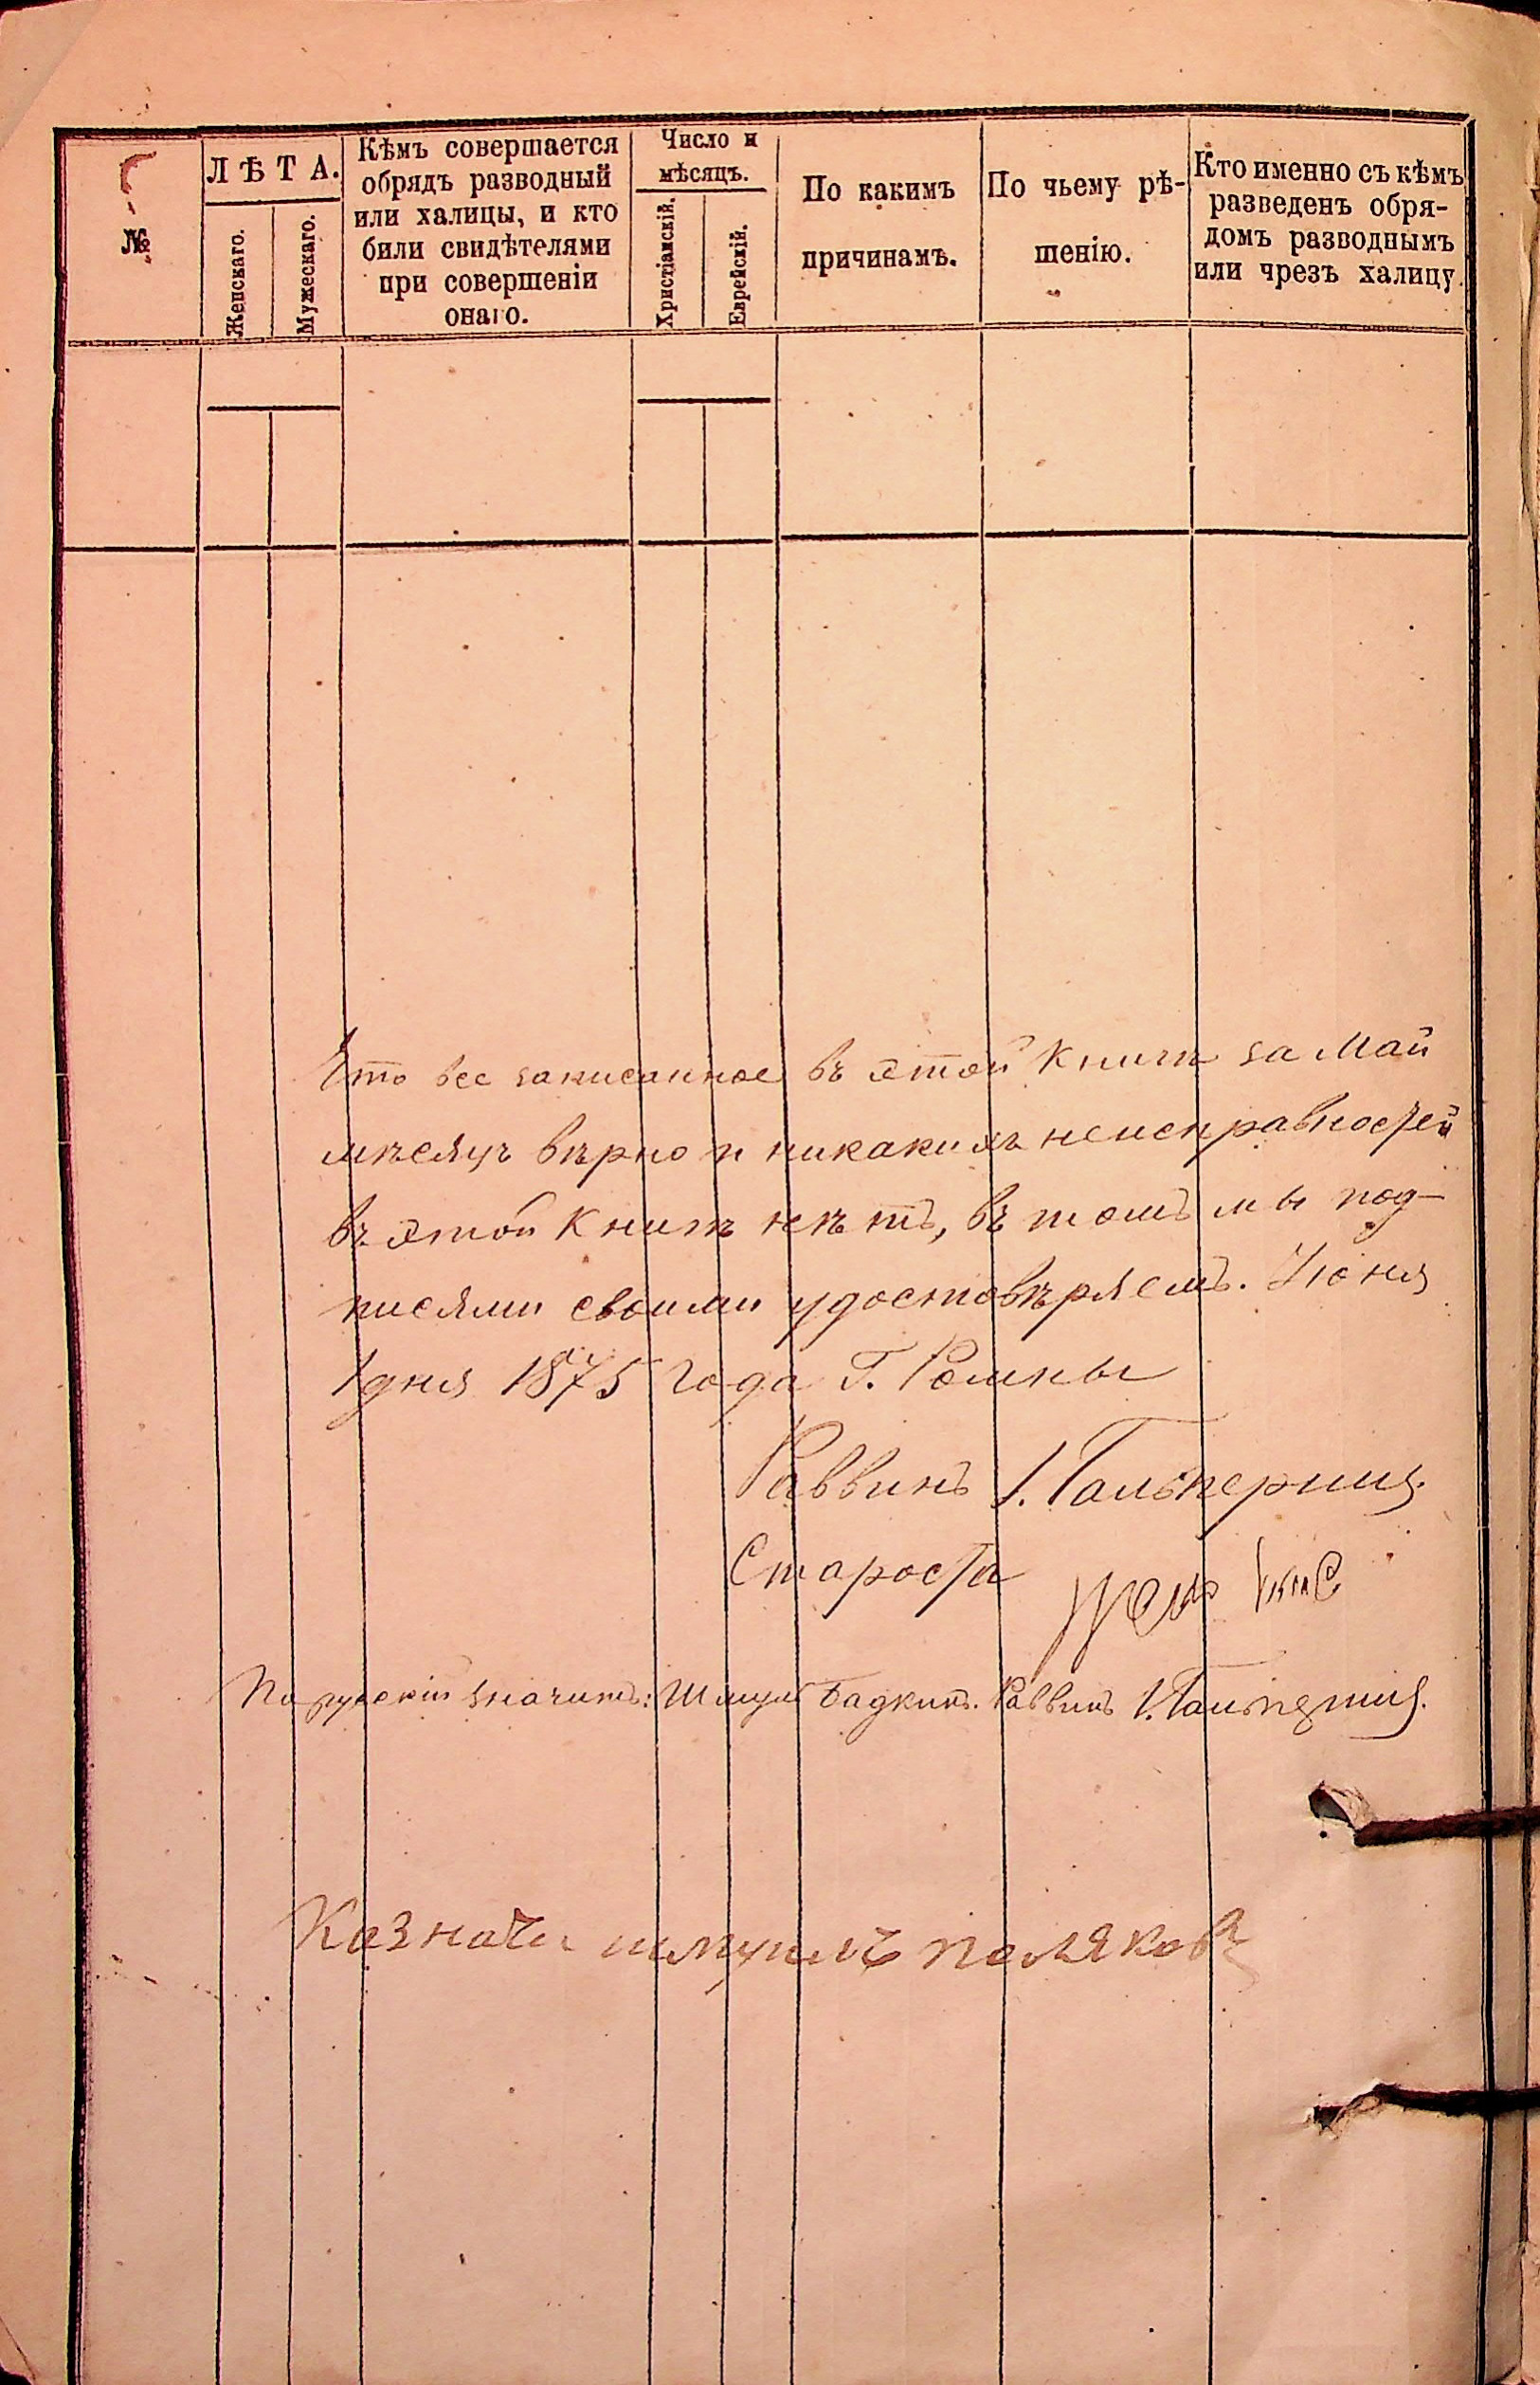 №
ЛѢТА.
Женскаго.
Мужескаго.
Кѣмъ совершается
обрядъ разводный
или халицы, и кто
били свидѣтелями
при совершеніи
онаго.
Число и
мѣсяцъ.
Христіанскій.
Еврейскій.
По какимъ
причинамъ.
По чьему рѣ-
шенію.
Кто именно съ кѣмъ
разведенъ обря-
домъ разводнымъ
или чрезъ халицу.
Что все записанное въ этой книгѣ за Май
мѣсяцъ вѣрно и никакихъ неисправностей
въ этой книгѣ нѣтъ, въ томъ мы под-
писями своими удостовѣряемъ. Июня
1 дня 1875 года Г. Ромны
Раввинъ І. Гальперинъ.
Староста
По русскій значитъ: Шмуль Бадкинъ. Раввинъ І. Гальперинъ.
Казначеи шмуиль поляковъ